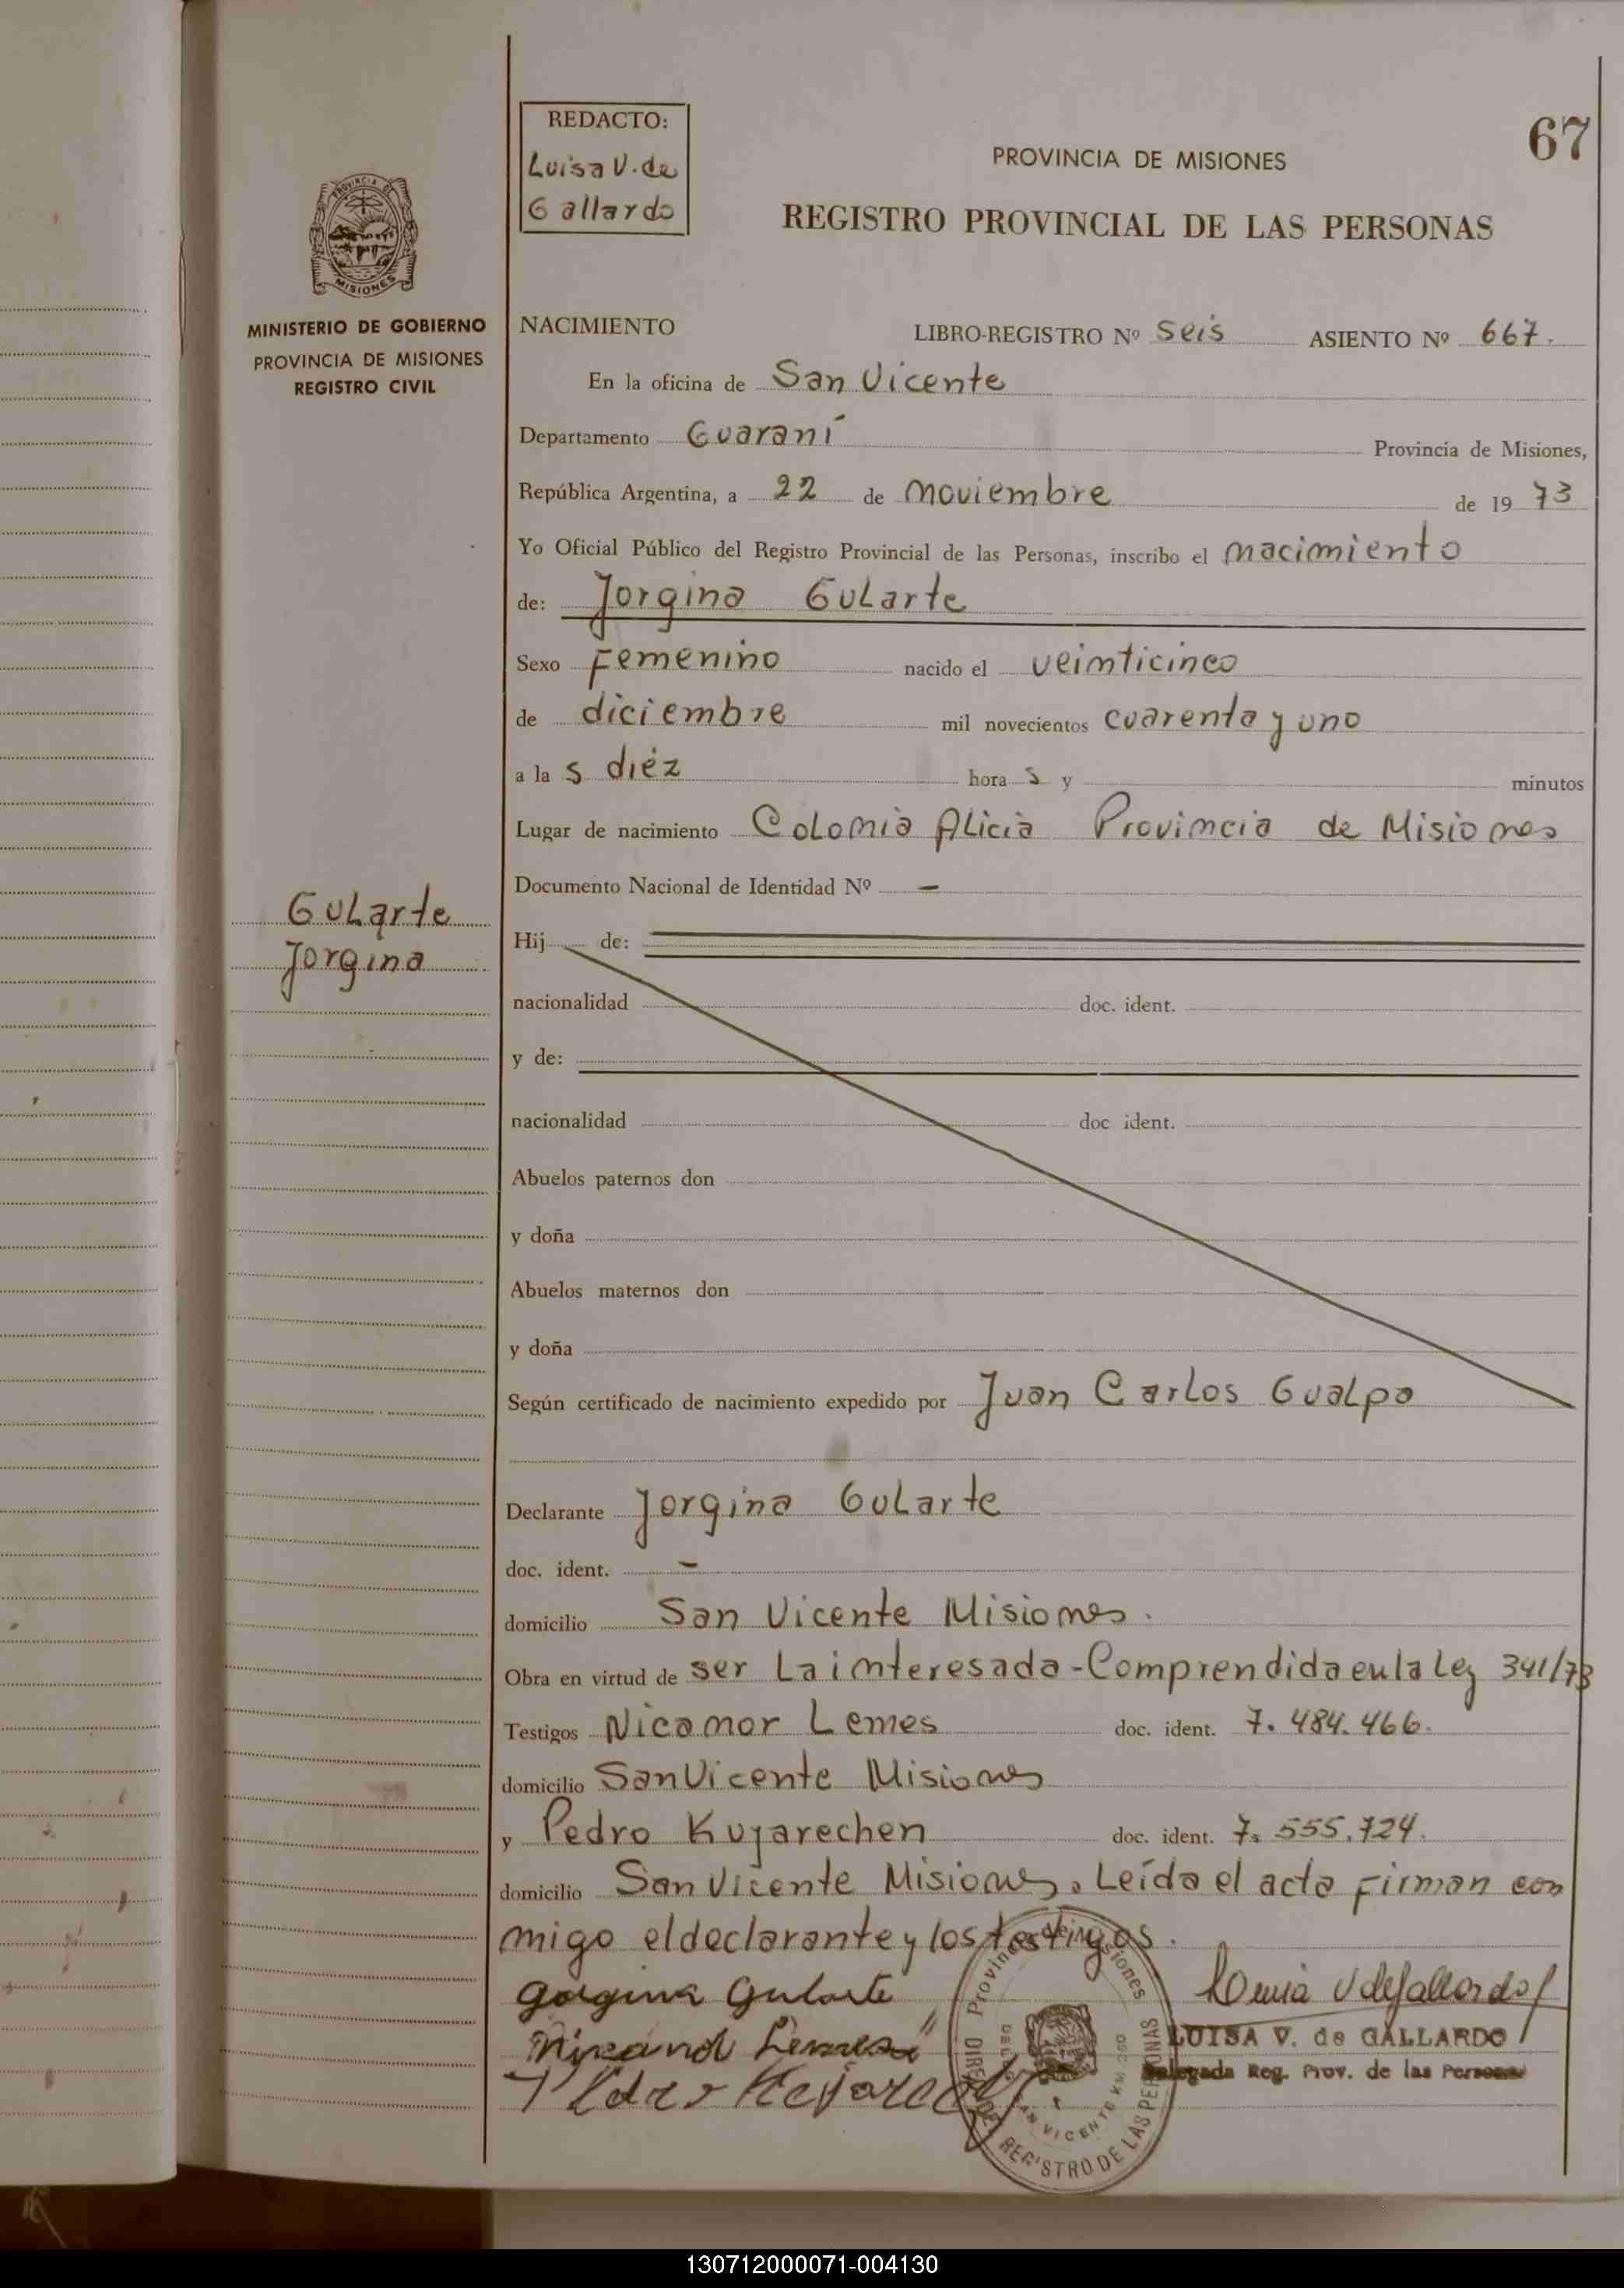 REDACTO:
Luisa V. de
Gallardo
67
PROVINCIA DE MISIONES
REGISTRO PROVINCIAL DE LAS PERSONAS
PROVINCIA DE
MISIONES
MINISTERIO DE GOBIERNO
PROVINCIA DE MISIONES
REGISTRO CIVIL
NACIMIENTO LIBRO-REGISTRO Nº Seis ASIENTO Nº 667.
En la oficina de San Vicente
Departamento Guaraní Provincia de Misiones,
República Argentina, a 22 de noviembre de 19 73
Yo Oficial Público del Registro Provincial de las Personas, inscribo el nacimiento
de: Jorgina Gularte
Sexo Femenino nacido el veinticinco
de diciembre mil novecientos cuarenta y uno
a la s diéz hora s y minutos
Lugar de nacimiento Colonia Alicia Provincia de Misiones
Documento Nacional de Identidad Nº —
Gularte
Jorgina
Hij de:
nacionalidad doc. ident.
y de:
nacionalidad doc ident.
Abuelos paternos don
y doña
Abuelos maternos don
y doña
Según certificado de nacimiento expedido por Juan Carlos Gualpa
Declarante Jorgina Gularte
doc. ident. —
domicilio San Vicente Misiones.
Obra en virtud de ser La interesada - Comprendida en la Ley 341/73
Testigos Nicanor Lemes doc. ident. 7.484.466.
domicilio San Vicente Misiones
y Pedro Kujarechen doc. ident. 7.555.724.
domicilio San Vicente Misiones. Leída el acta firman con
migo el declarante y los testigos.
Gorgina Gularte
LUISA V. de GALLARDO
Delegada Reg. Prov. de las Personas
Provincia de Misiones
SAN VICENTE KM 260
REGISTRO DE LAS PERSONAS
130712000071-004130